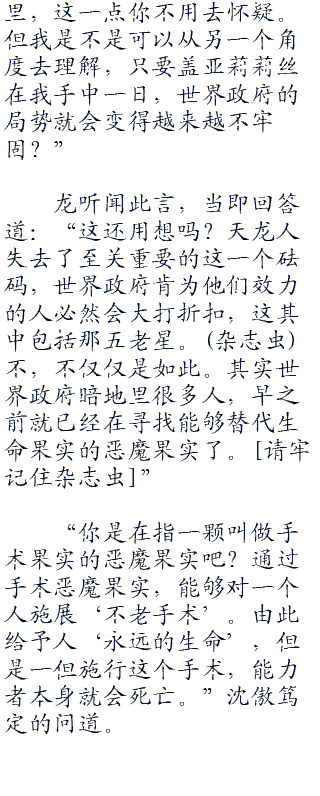 里，这一点你不用去怀疑。
但我是不是可以从另一个角
度去理解，只要盖亚莉莉丝
在我手中一日，世界政府的
局势就会变得越来越不牢
固？”
龙听闻此言，当即回答
道：“这还用想吗？天龙人
失去了至关重要的这一个砝
码，世界政府肯为他们效力
的人必然会大打折扣，这其
中包括那五老星。(杂志虫)
不，不仅仅是如此。其实世
界政府暗地里很多人，早之
前就已经在寻找能够替代生
命果实的恶魔果实了。[请牢
记住杂志虫]”
“你是在指一颗叫做手
术果实的恶魔果实吧？通过
手术恶魔果实，能够对一个
人施展‘不老手术’。由此
给予人‘永远的生命’，但
是一但施行这个手术，能力
者本身就会死亡。”沈傲笃
定的问道。